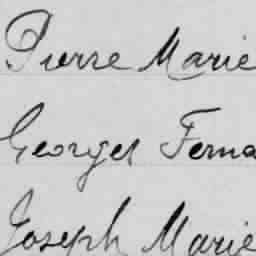 Pierre Marie
Georges Ferna
Joseph Marie